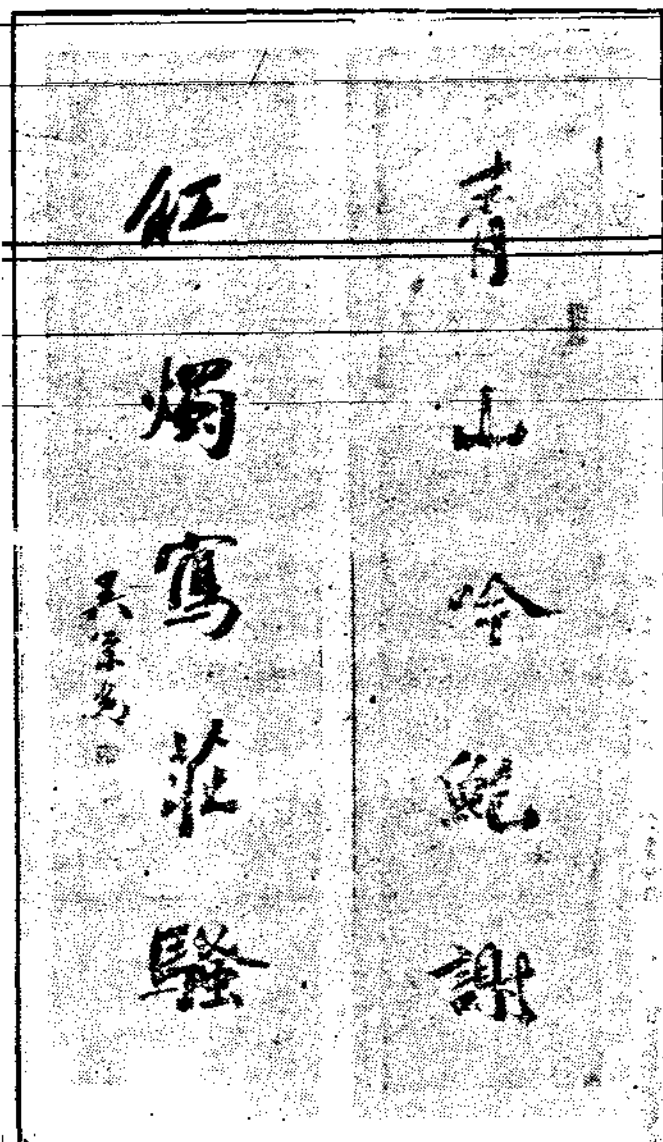 青山吟鮑謝
紅燭寫莊騷
吳榮光